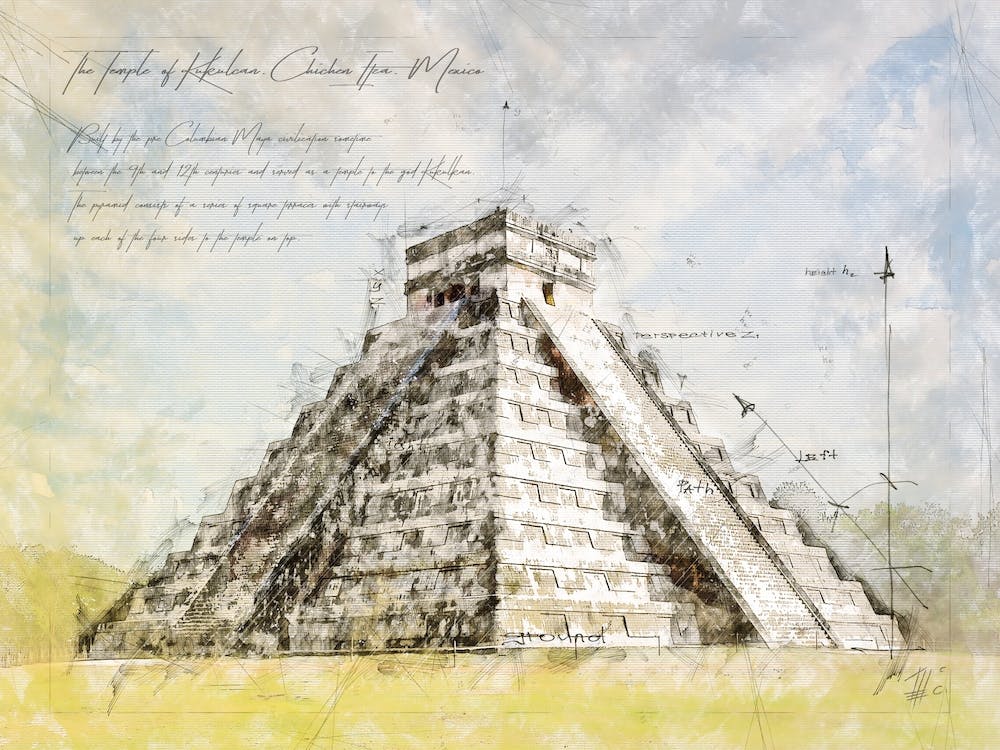 The Temple of Kukulcan. Chichen Itza. Mexico
Built by the pre Columbian Maya civilization sometime
between the 9th and 12th centuries and served as a temple to the god Kukulkan.
The pyramid consists of a series of square terraces with stairways
up each of the four sides to the temple on top.
y
height h
perspective Z1
Left
Path
ground